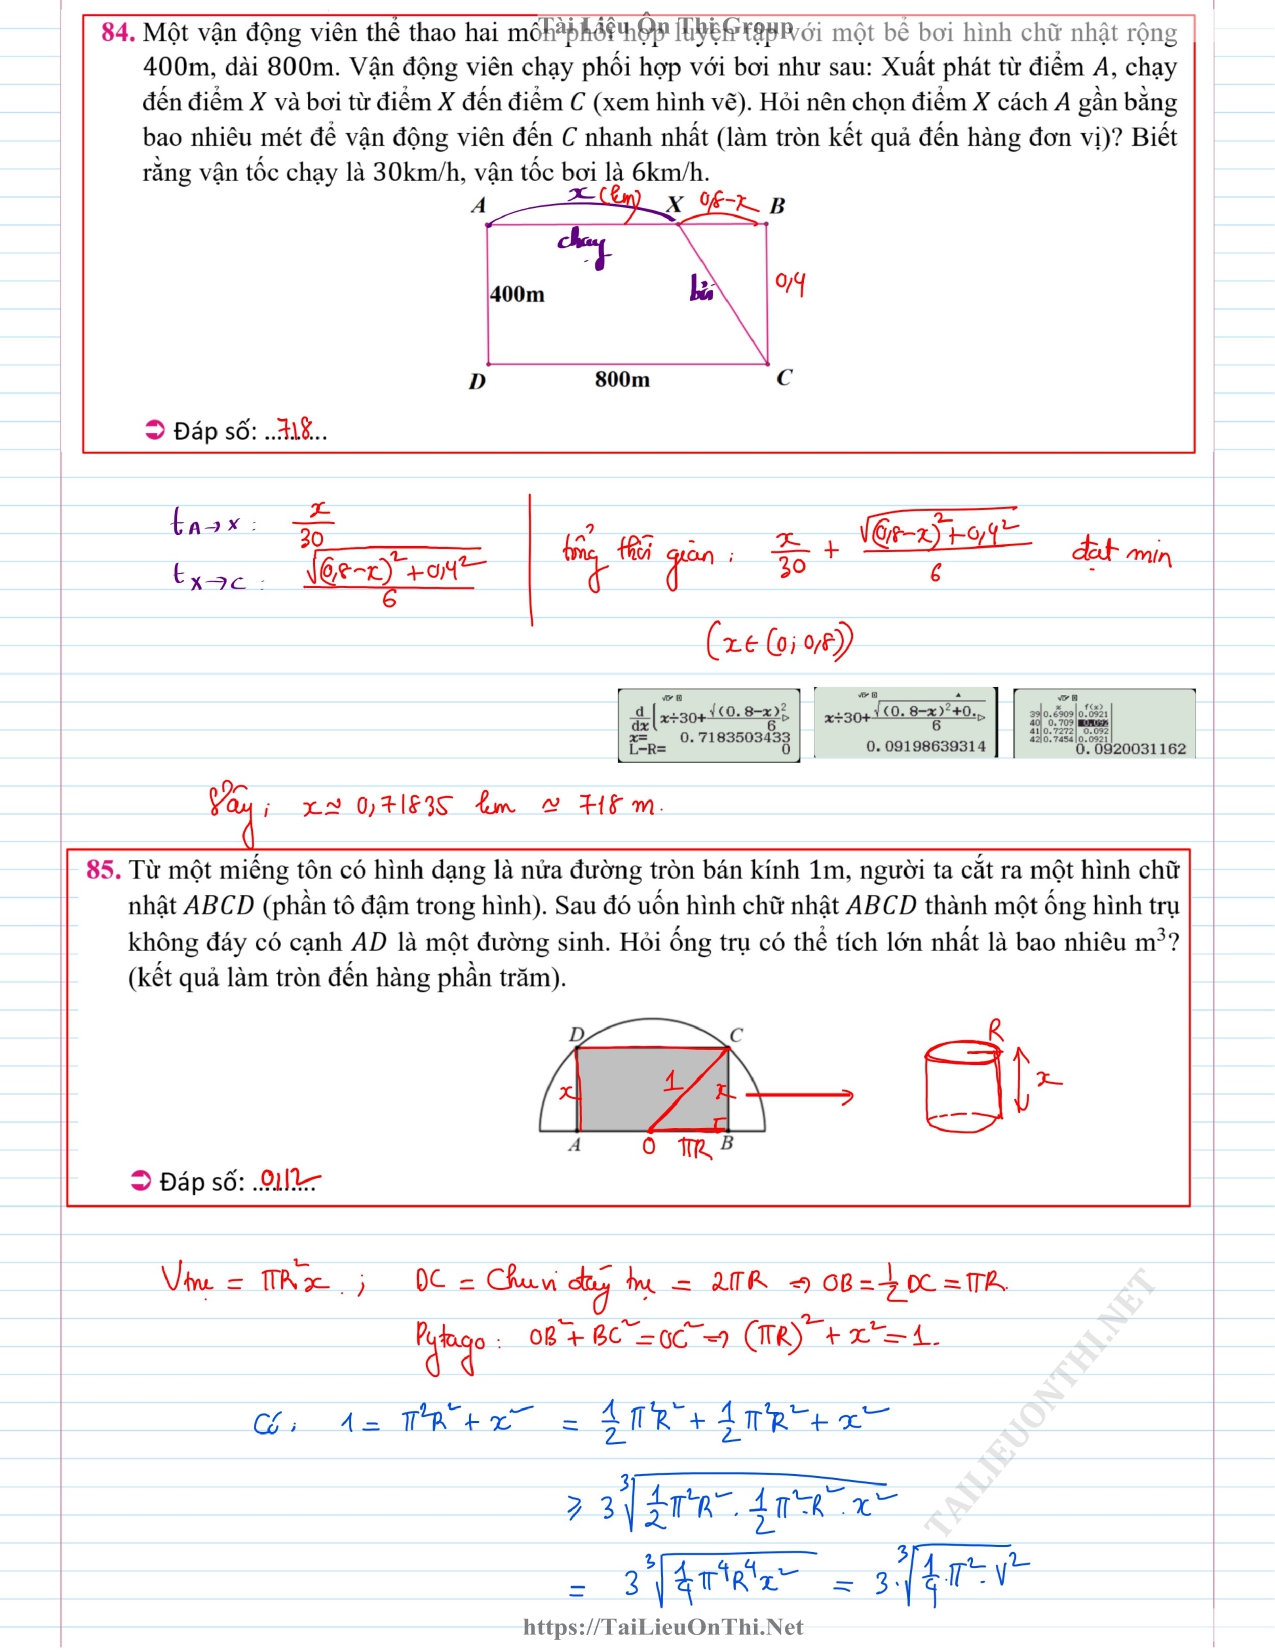 Tài Liệu Ôn Thi Group
84. Một vận động viên thể thao hai môn phối hợp luyện tập với một bể bơi hình chữ nhật rộng
400m, dài 800m. Vận động viên chạy phối hợp với bơi như sau: Xuất phát từ điểm A, chạy
đến điểm X và bơi từ điểm X đến điểm C (xem hình vẽ). Hỏi nên chọn điểm X cách A gần bằng
bao nhiêu mét để vận động viên đến C nhanh nhất (làm tròn kết quả đến hàng đơn vị)? Biết
rằng vận tốc chạy là 30km/h, vận tốc bơi là 6km/h.
A x (km) X 0,8-x B
chạy
400m bơi 0,4
D 800m C
Đáp số: ..718..
t A→X : x/30
t X→C : √((0,8-x)²+0,4²)/6
tổng thời gian: x/30 + √((0,8-x)²+0,4²)/6 đạt min
(x∈(0;0,8))
d/dx(x÷30+√((0.8-x)²/6▷
x= 0.7183503433
L-R= 0
x÷30+√((0.8-x)²+0.▷/6
0.09198639314
x f(x)
39 0.6909 0.0921
40 0.709 0.092
41 0.7272 0.092
42 0.7454 0.0921
0.0920031162
Vậy: x ≈ 0,71835 km ≈ 718 m.
85. Từ một miếng tôn có hình dạng là nửa đường tròn bán kính 1m, người ta cắt ra một hình chữ
nhật ABCD (phần tô đậm trong hình). Sau đó uốn hình chữ nhật ABCD thành một ống hình trụ
không đáy có cạnh AD là một đường sinh. Hỏi ống trụ có thể tích lớn nhất là bao nhiêu m³?
(kết quả làm tròn đến hàng phần trăm).
D C R
x 1 x x
A O πR B
Đáp số: ..0,12..
Vtrụ = πR²x ; DC = Chu vi đáy trụ = 2πR ⇒ OB = 1/2 DC = πR.
Pytago: OB²+BC²=OC² ⇒ (πR)²+x²=1.
Có: 1 = π²R²+x² = 1/2 π²R² + 1/2 π²R² + x²
≥ 3∛(1/2 π²R² . 1/2 π².R² . x²)
= 3∛(1/4 π⁴R⁴x²) = 3.∛(1/4.π².V²)
TAILIEUONTHI.NET
https://TaiLieuOnThi.Net